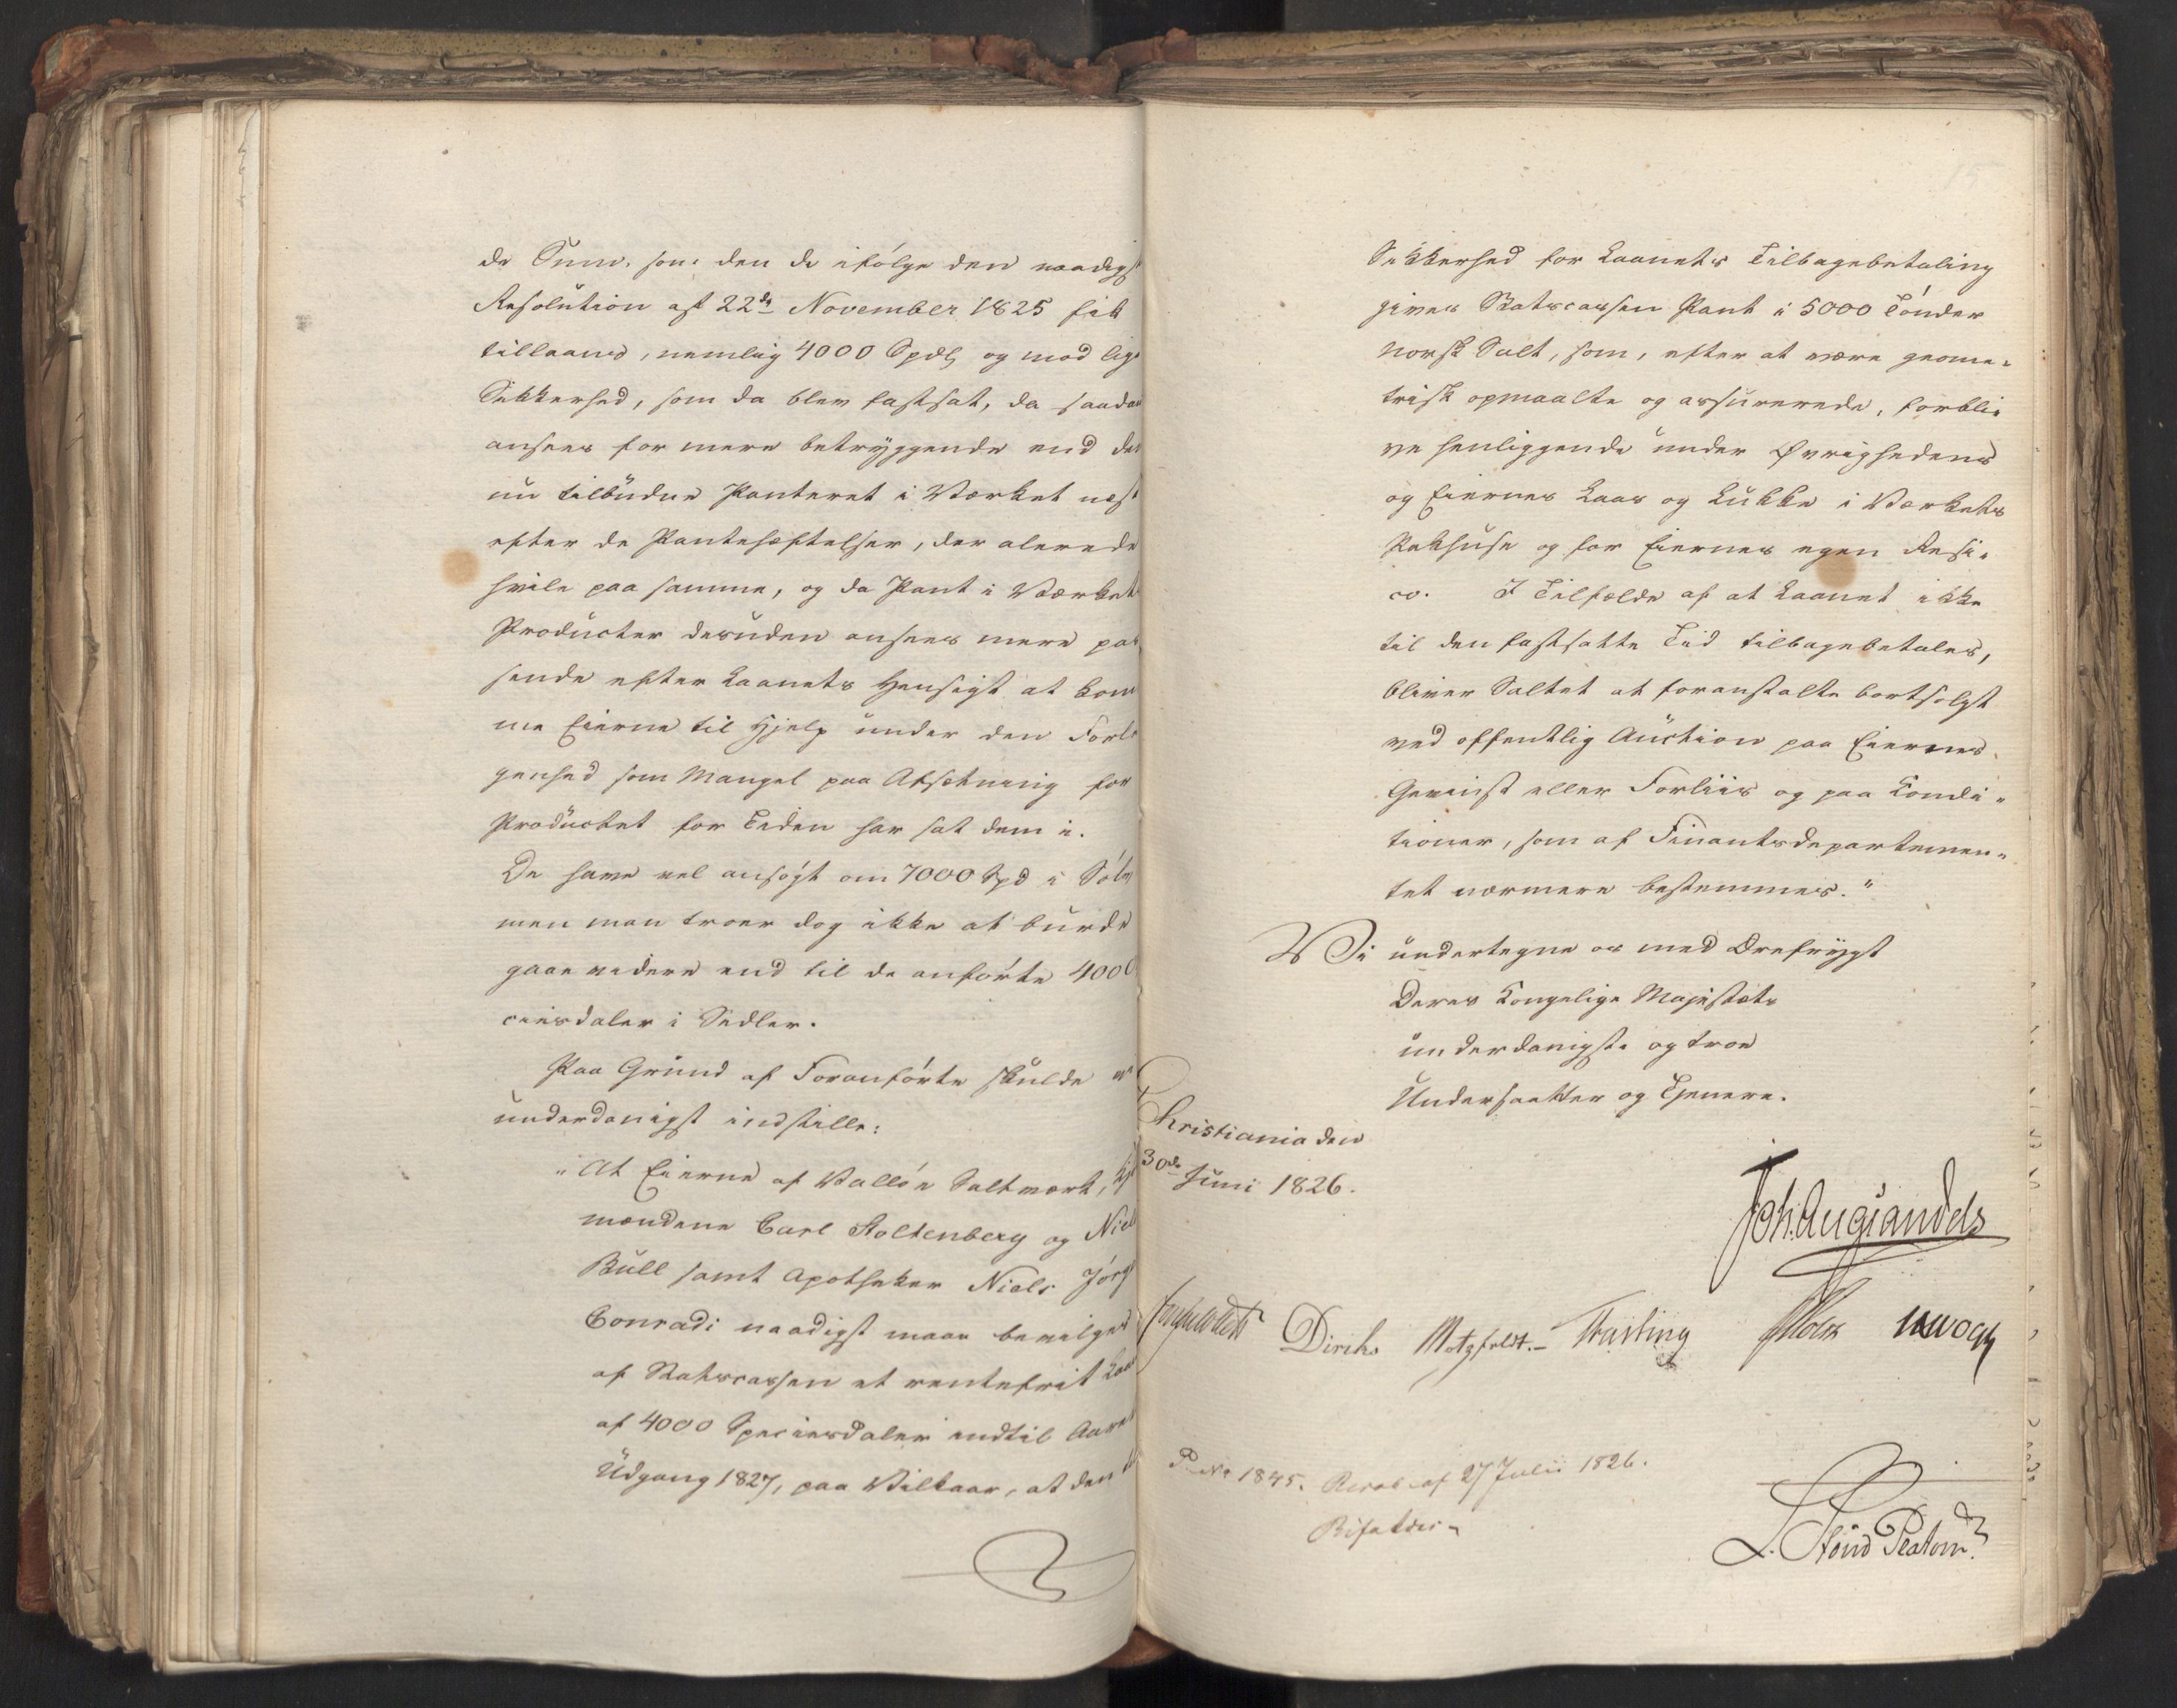 de Sum, som den de ifølge den naadigst
Resolution af 22de November 1825 fik
tillaans, nemlig 4000 Spdlr og mod lige
Sikkerhed, som da blev fastsat, da saadan
ansees for mere betryggende end den
nu tilbudne Panteret i Værket næst
efter de Pantehæftelser, der alerede
hvile paa samme, og da Pant i Værkets
Producter desuden ansees mere pas
sende efter Laanets Hensigt at kom
me Eierne til Hjelp under den Forle
genhed som Mangel paa Afsætning for
Productet for Tiden har sat dem i.
De have vel ansøgt om 7000 Spd i Sølv,
men man troer dog ikke at burde
gaae videre end til de anførte 4000
ciesdaler i Sedler.
Paa Grund af Foranførte skulde vi
underdanigst indstille:
"At Eierne af Valløe Saltværk, Kjø
mændene Carl Stoltenberg og Niels
Bull samt Apotheker Niels Jørg
Conradi naadigst maae bevilges
af Statscassen et rentefrit Laan
af 4000 Speciesdaler indtil Aarets
Udgang 1827, paa Vilkaar, at den til
Sikkerhed for Laanets Tilbagebetaling
gives Statscassen Pant i 5000 Tønder
norsk Salt, som, efter at være geome-
trisk opmaalte og assurerede, forbli-
ve henliggende under Øvrighedens
og Eiernes Laas og Lukke i Værkets
Pakhuse og for Eiernes egen Resi-
co. I Tilfælde af at Laanet ikke
til den fastsatte Tid tilbagebetales,
bliver Saltet at foranstalte bortsolgt
ved offentlig Auction paa Eiernes
Gevinst eller Forliis og paa Condi-
tioner, som af Finantsdepartemen-
tet nærmere bestemmes."
Vi undertegne os med Ærefrygt
Deres Kongelige Majestæts
underdanigste og troe
Undersaatter og Tjenere.
Christiania den
30de Juni 1826.
Joh. Aug. Sandels
Diriks Motzfeldt. Treschow Holst
P. No 1845. Resol. af 27 Julii 1826.
Bifaldes
L. Stoud Platou